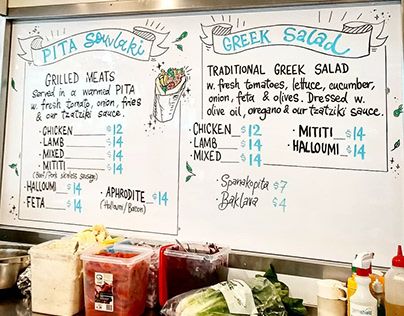 PITA Souvlaki
GRILLED MEATS
Served in a warmed PITA
w. fresh tomato, onion, fries
& our tzatziki sauce.
· CHICKEN $12
· LAMB $14
· MIXED $14
· MITITI $14
(Beef/Pork skinless sausage)
· HALLOUMI $14
· FETA $14
· APHRODITE $14
(Halloumi/Bacon)
GREEK Salad
TRADITIONAL GREEK SALAD
w. fresh tomatoes, lettuce, cucumber,
onion, feta & olives. Dressed w.
olive oil, oregano & our tzatziki sauce.
· CHICKEN $12
· LAMB $14
· MIXED $14
· MITITI $14
· HALLOUMI $14
· Spanakopita $7
· Baklava $4